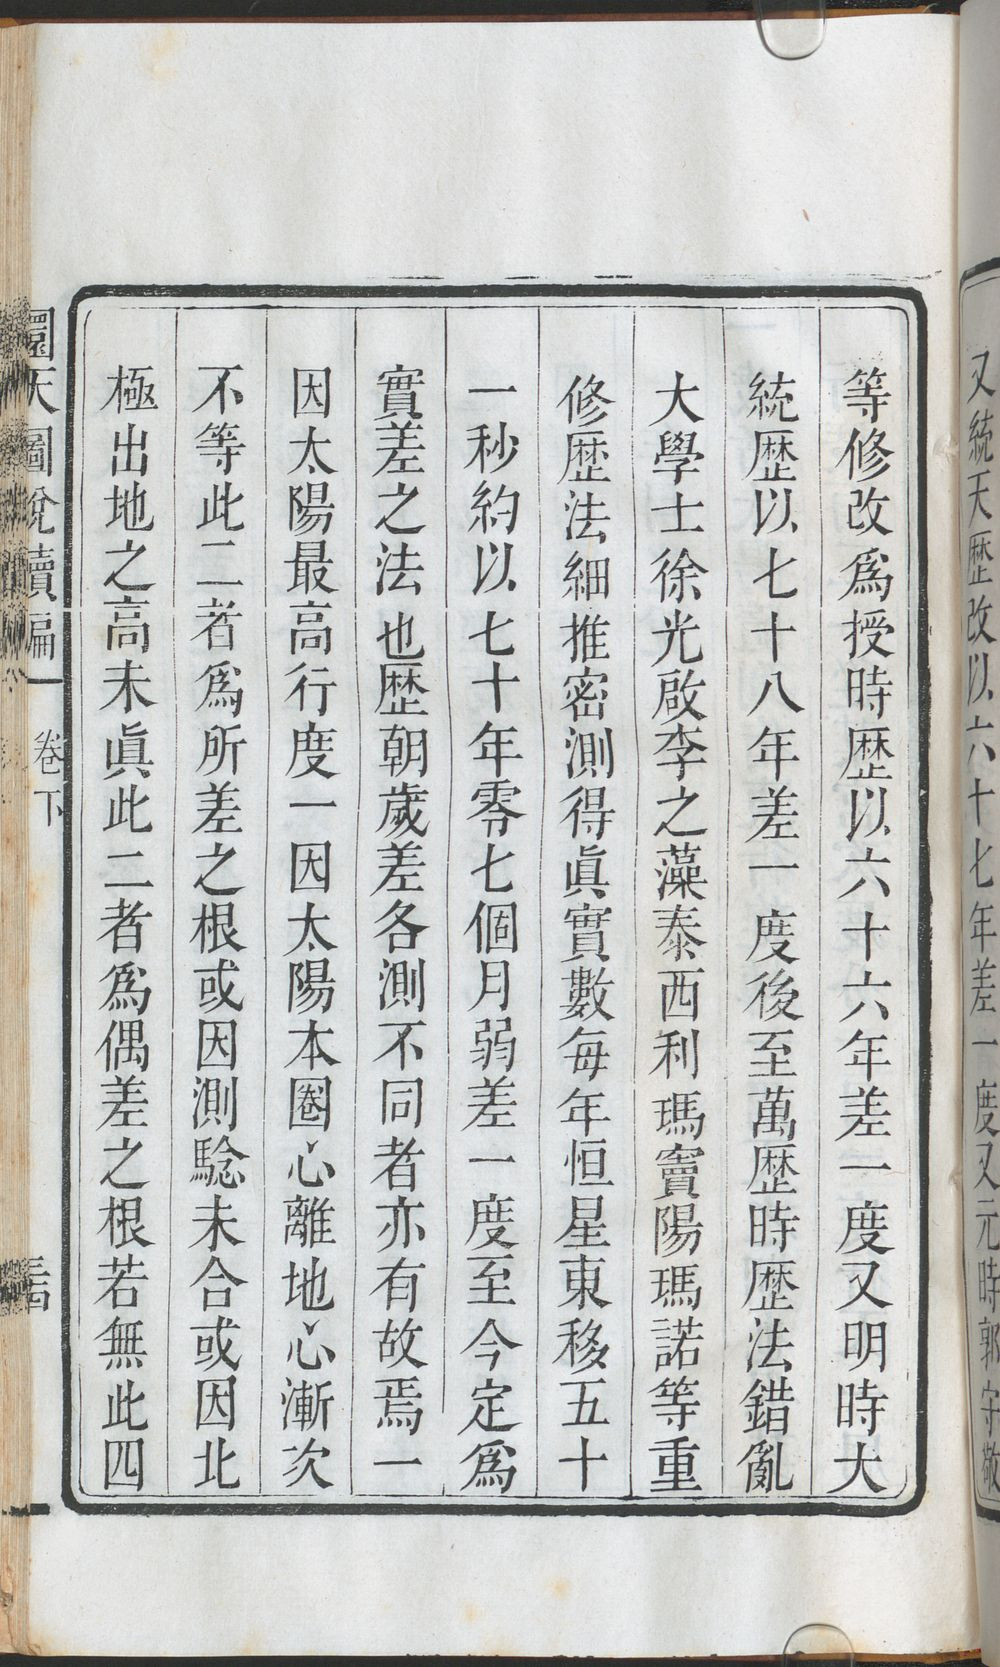 又統天歴改以六十七年差一度又元時郭守敬
等修改爲授時歴以六十六年差一度又明時大
統歴以七十八年差一度後至萬歴時歴法錯亂
大學士徐光啟李之藻泰西利瑪竇陽瑪諾等重
修歴法細推密測得眞實數每年恒星東移五十
一秒約以七十年零七個月弱差一度至今定爲
實差之法也歴朝歲差各測不同者亦有故焉一
因太陽最高行度一因太陽本圈心離地心漸次
不等此二者爲所差之根或因測騐未合或因北
極出地之高未眞此二者爲偶差之根若無此四
圜天圖說續編 卷下 三四